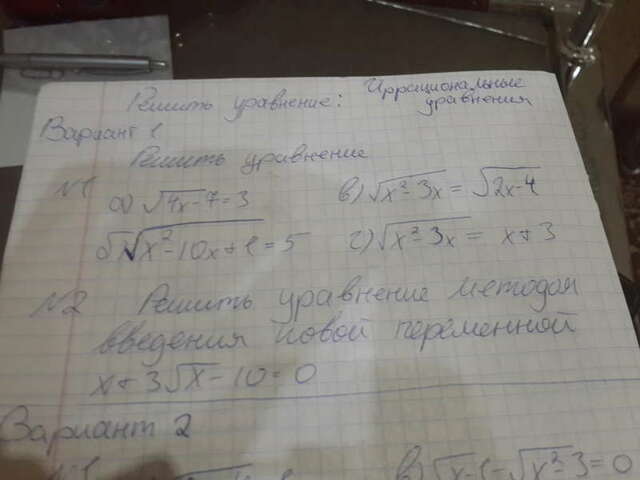 Решить уравнение: Иррациональные уравнения
Вариант 1
Решить уравнение
№1
а) √4x-7=3
в) √x²-3x = √2x-4
б) √x²-10x+1=5
г) √x²-3x = x+3
№2 Решить уравнение методом
введения новой переменной
x+3√x-10=0
Вариант 2
№1
в) √x-1-√x²-3=0